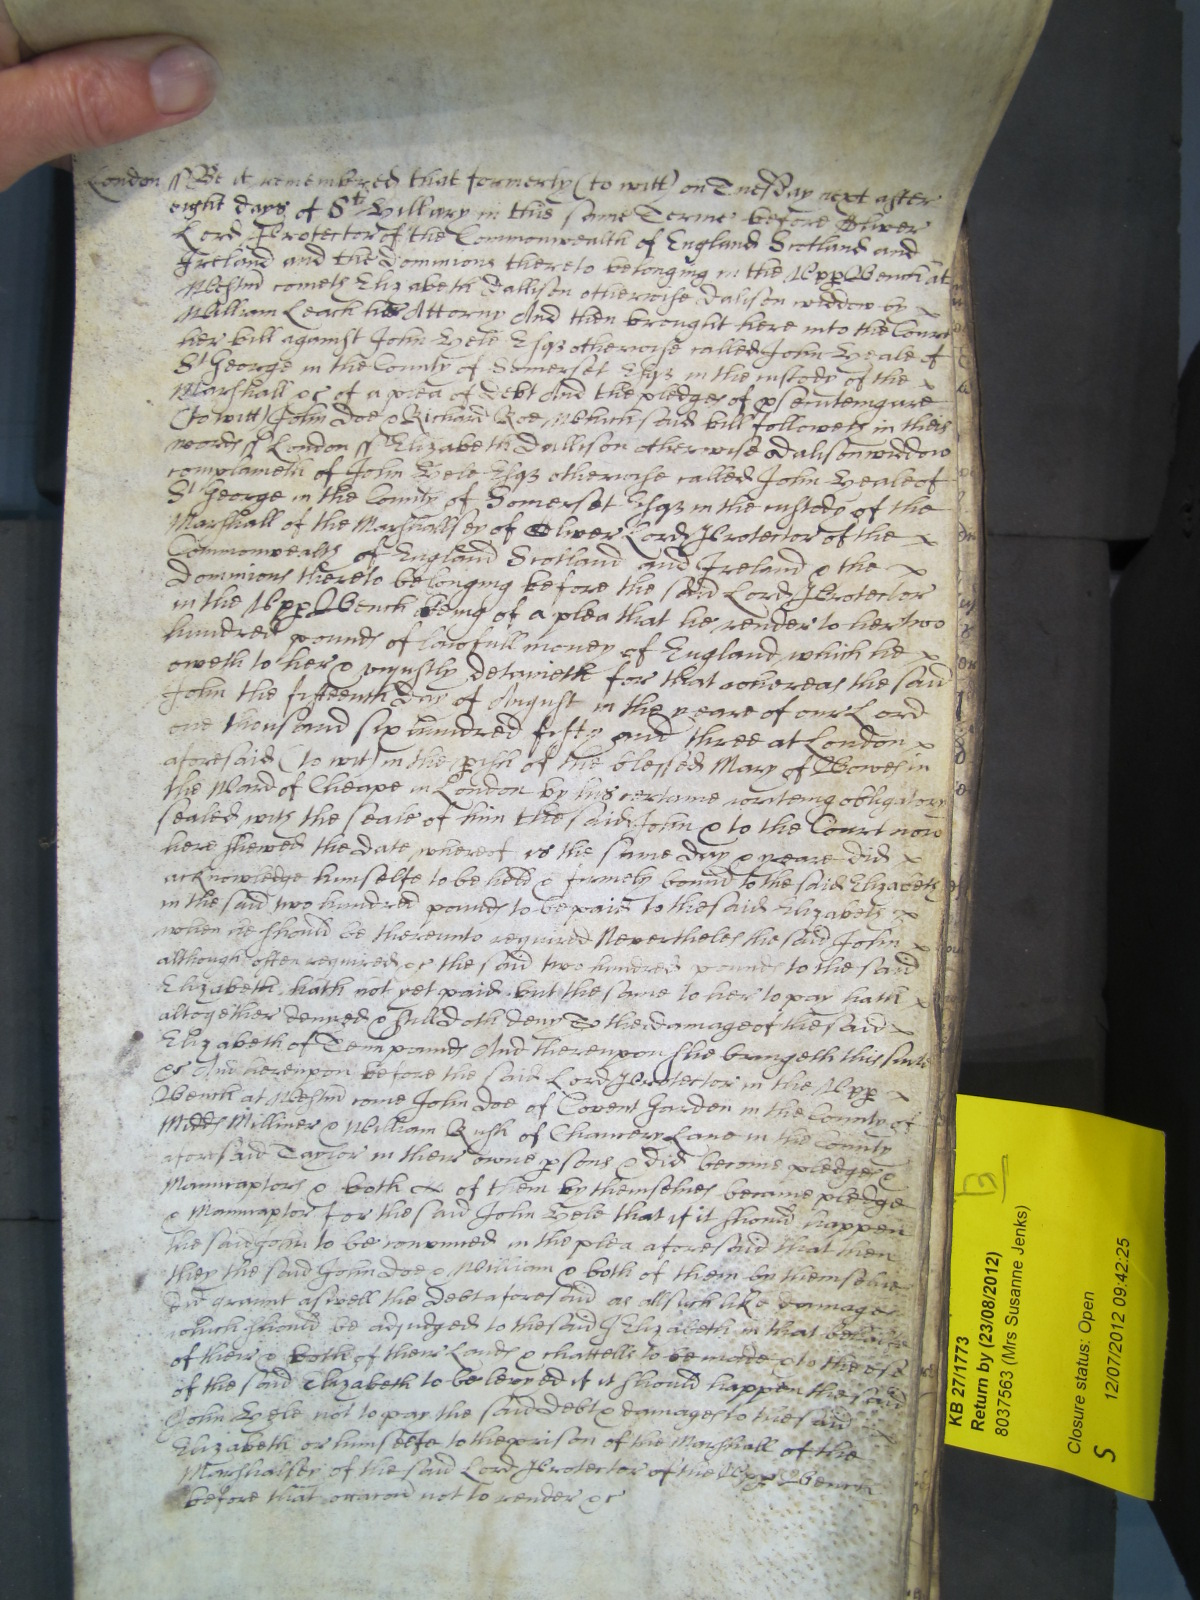 London ss Be it remembred that formerly (to witt) on Tuesday next after
eight dayes of St Hillary in this same Terme before Oliver
Lord Protector of the Commonwealth of England Scotland and
Ireland and the Dominions thereto belonging in the Upp Bench at
Westm comets Elizabeth Dallison otherwise Dalison widdow by x
William Leach her Attorny And then brought here into the Court
her bill against John Veele Esqr otherwise called John Veale of
St George in the County of Somerset Esqr in the custody of the x
Marshall &c of a plea of debt And the pledges of psecuteing are
(to witt) John Doe & Richard Roe, Which said bill followeth in theis
words ss London ss Elizabeth Dallison otherwise Dalison widdow
complaineth of John Veele Esqr otherwise called John Veale of
St George in the County of Somerset Esqr in the custody of the
Marshall of the Marshallsey of Oliver Lord Protector of the x
Commonwealth of England Scotland and Ireland & the x
Dominions thereto belonging before the said Lord Protector
in the Upp Bench being of a plea that he render to her two
hundred pounds of lawfull money of England which he x
oweth to her & unjustly detaineth for that whereas the said
John the fifteenth day of August in the yeare of our Lord
one thousand six hundred fifty and three at London x
aforesaid (to wit) in the pish of the blessed Mary of Bowe in
the Ward of Cheape in London by his certaine writeing obligatory
sealed with the seale of him the said John & to the Court now
here shewed the date whereof is the same day & yeare did x
acknowledge himselfe to be held & firmely bound to the said Elizabeth
in the said two hundred pounds to be paid to the said Elizabeth x
when he should be thereunto required Nevertheles the said John x
although often required &c the said two hundred pounds to the said
Elizabeth hath not yet paid but the same to her to pay hath x
altogether denyed & still doth deny To the damage of the said x
Elizabeth of Tenn pounds And thereupon she bringeth this suite
&c And hereupon before the said Lord Protector in the Upp x
Bench at Westm come John Doe of Covent Garden in the County of
Midds Milliner & William Rush of Chancery Lane in the County
aforesaid Taylor in their owne psons & did become pledges &
Manucaptors & both of them by themselves became pledge
& Manucaptor for the said John Veele that if it should happen
the said John to be convinced in the plea aforesaid that then
they the said John Doe & William & both of them by themselves
did graunt aswell the debt aforesaid as all such like damages
which should be adjudged to the said Elizabeth in that behalfe
of their & both of their Lands & chattells to be made & to the use
of the said Elizabeth to be levyed if it should happen the said
John Veele not to pay the said debt & damages to the said x
Elizabeth or himselfe to the prison of the Marshall of the
Marshalsey of the said Lord Protector of the Upp Bench
before that occacon not to render &c
KB 27/1773
Return by (23/08/2012)
8037563 (Mrs Susanne Jenks)
Closure status: Open
S 12/07/2012 09:42:25